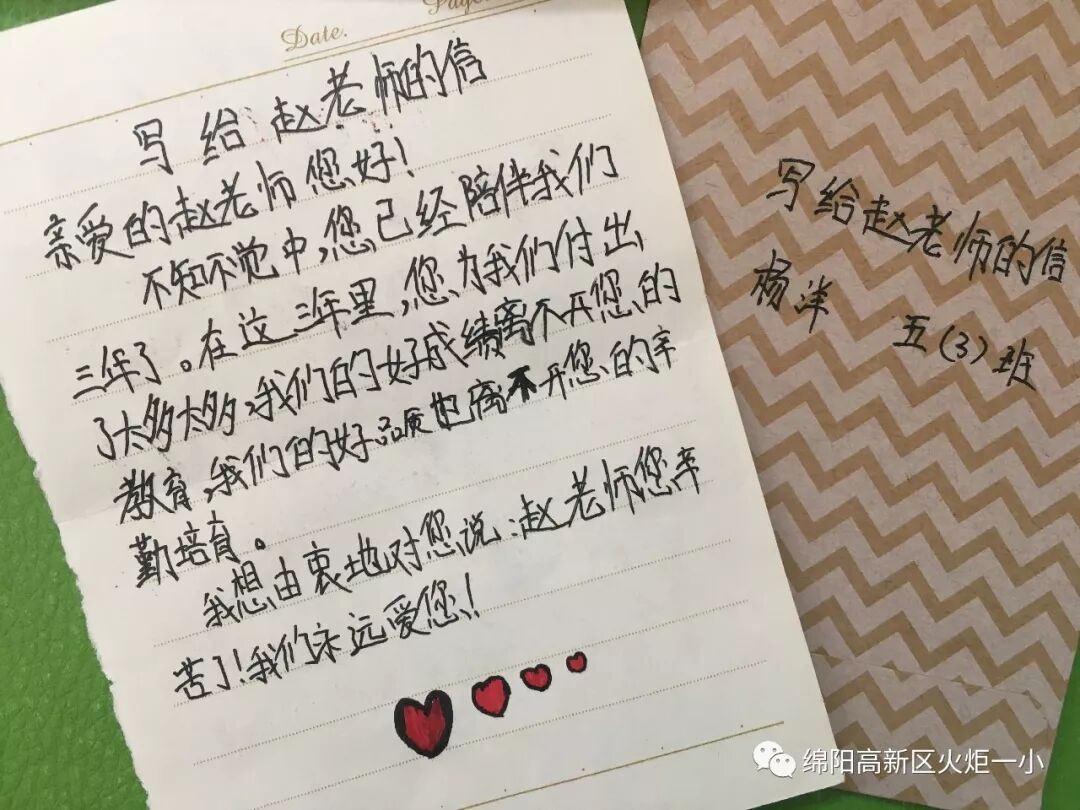 Date.
Page.
写给赵老师的信
亲爱的赵老师您好！
不知不觉中，您已经陪伴我们
三年了。在这三年里，您为我们付出
了太多太多，我们的好成绩离不开您的
教育，我们的好品质也离不开您的辛
勤培育。
我想由衷地对您说：赵老师您辛
苦了！我们永远爱您！
写给赵老师的信
杨洋 五（3）班
绵阳高新区火炬一小